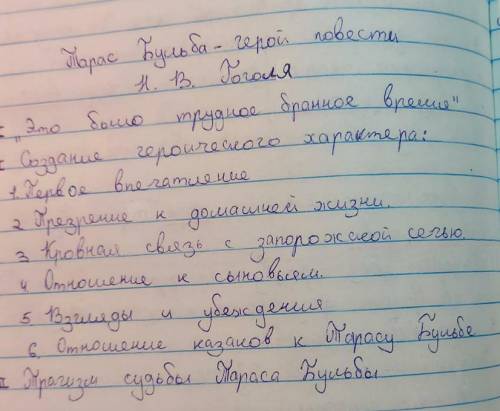 Тарас Бульба - герой повести
Н. В. Гоголя
I „Это было трудное бранное время"
I Создание героического характера:
1. Первое впечатление
2 Презрение к домашней жизни.
3 Кровная связь с запорожской сечью.
4 Отношение к сыновьям.
5 Взгляды и убеждения
6. Отношение казаков к Тарасу Бульбе
II Трагизм судьбы Тараса Бульбы